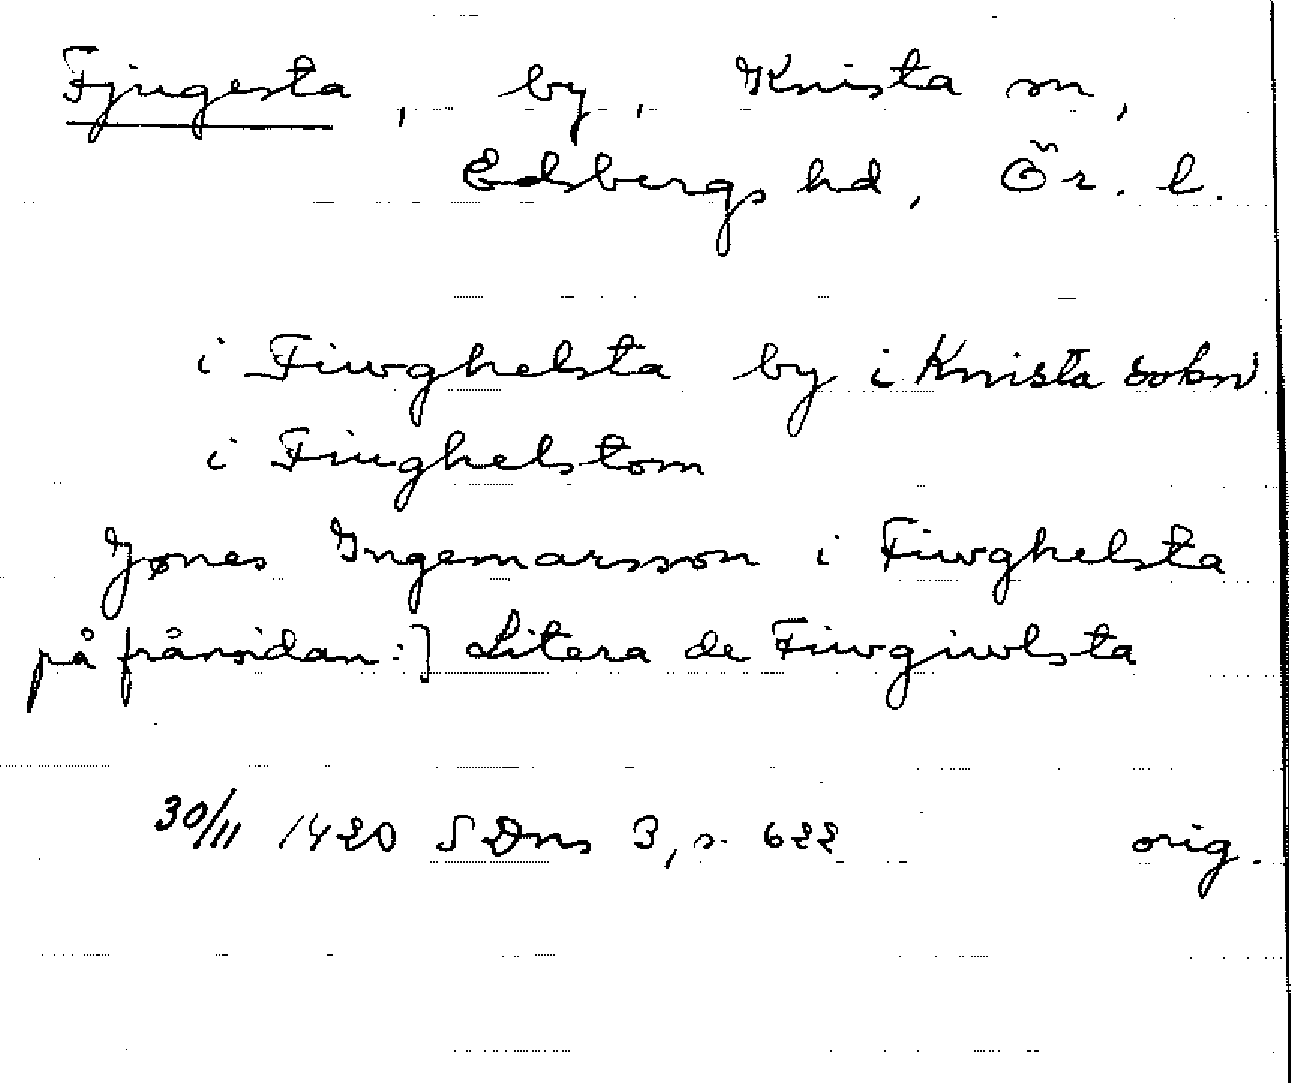 Fjugesta, by, Knista sn,
Edsbergs hd, Ör. l.
i Fiwghelsta by i Knista sokn
i Fiughelstom
Jønes Ingemarsson i Fiwghelsta
på frånsidan:] Litera de Fiwgiwlsta
30/11 1420 SDns 3, s. 622 orig.